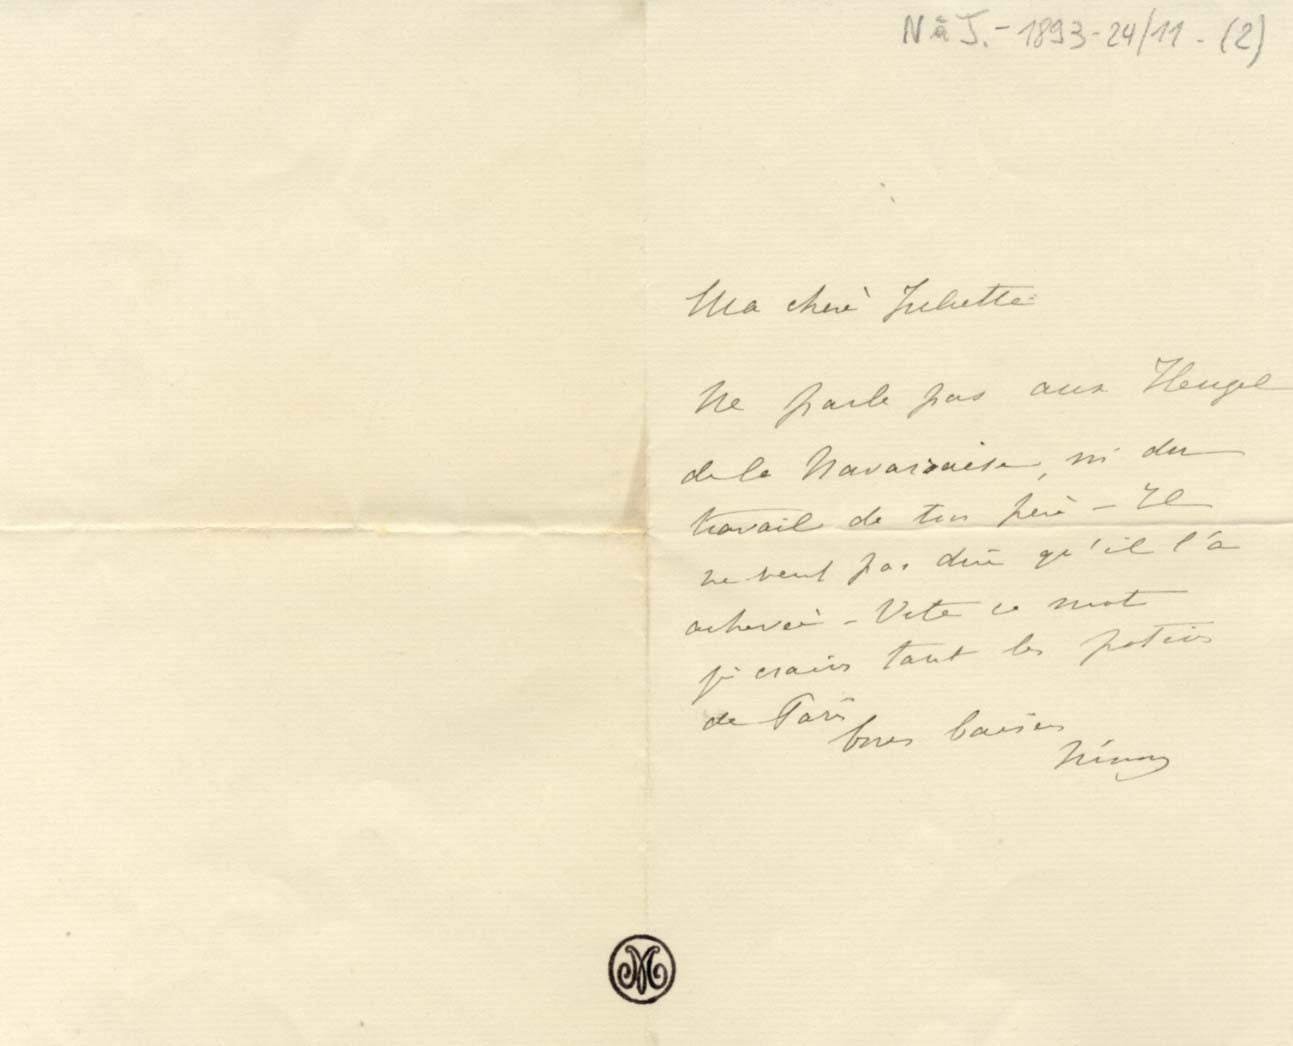 N à J. - 1893 - 24/11 - (2)
Ma chère Juliette
Ne parle pas aux Heugel
de la Navarraise, ni du
travail de ton père - Il
ne veut pas dire qu'il l'a
achevée - Vite ce mot
je crains tant les potins
de Paris
bons baisers
Ninon